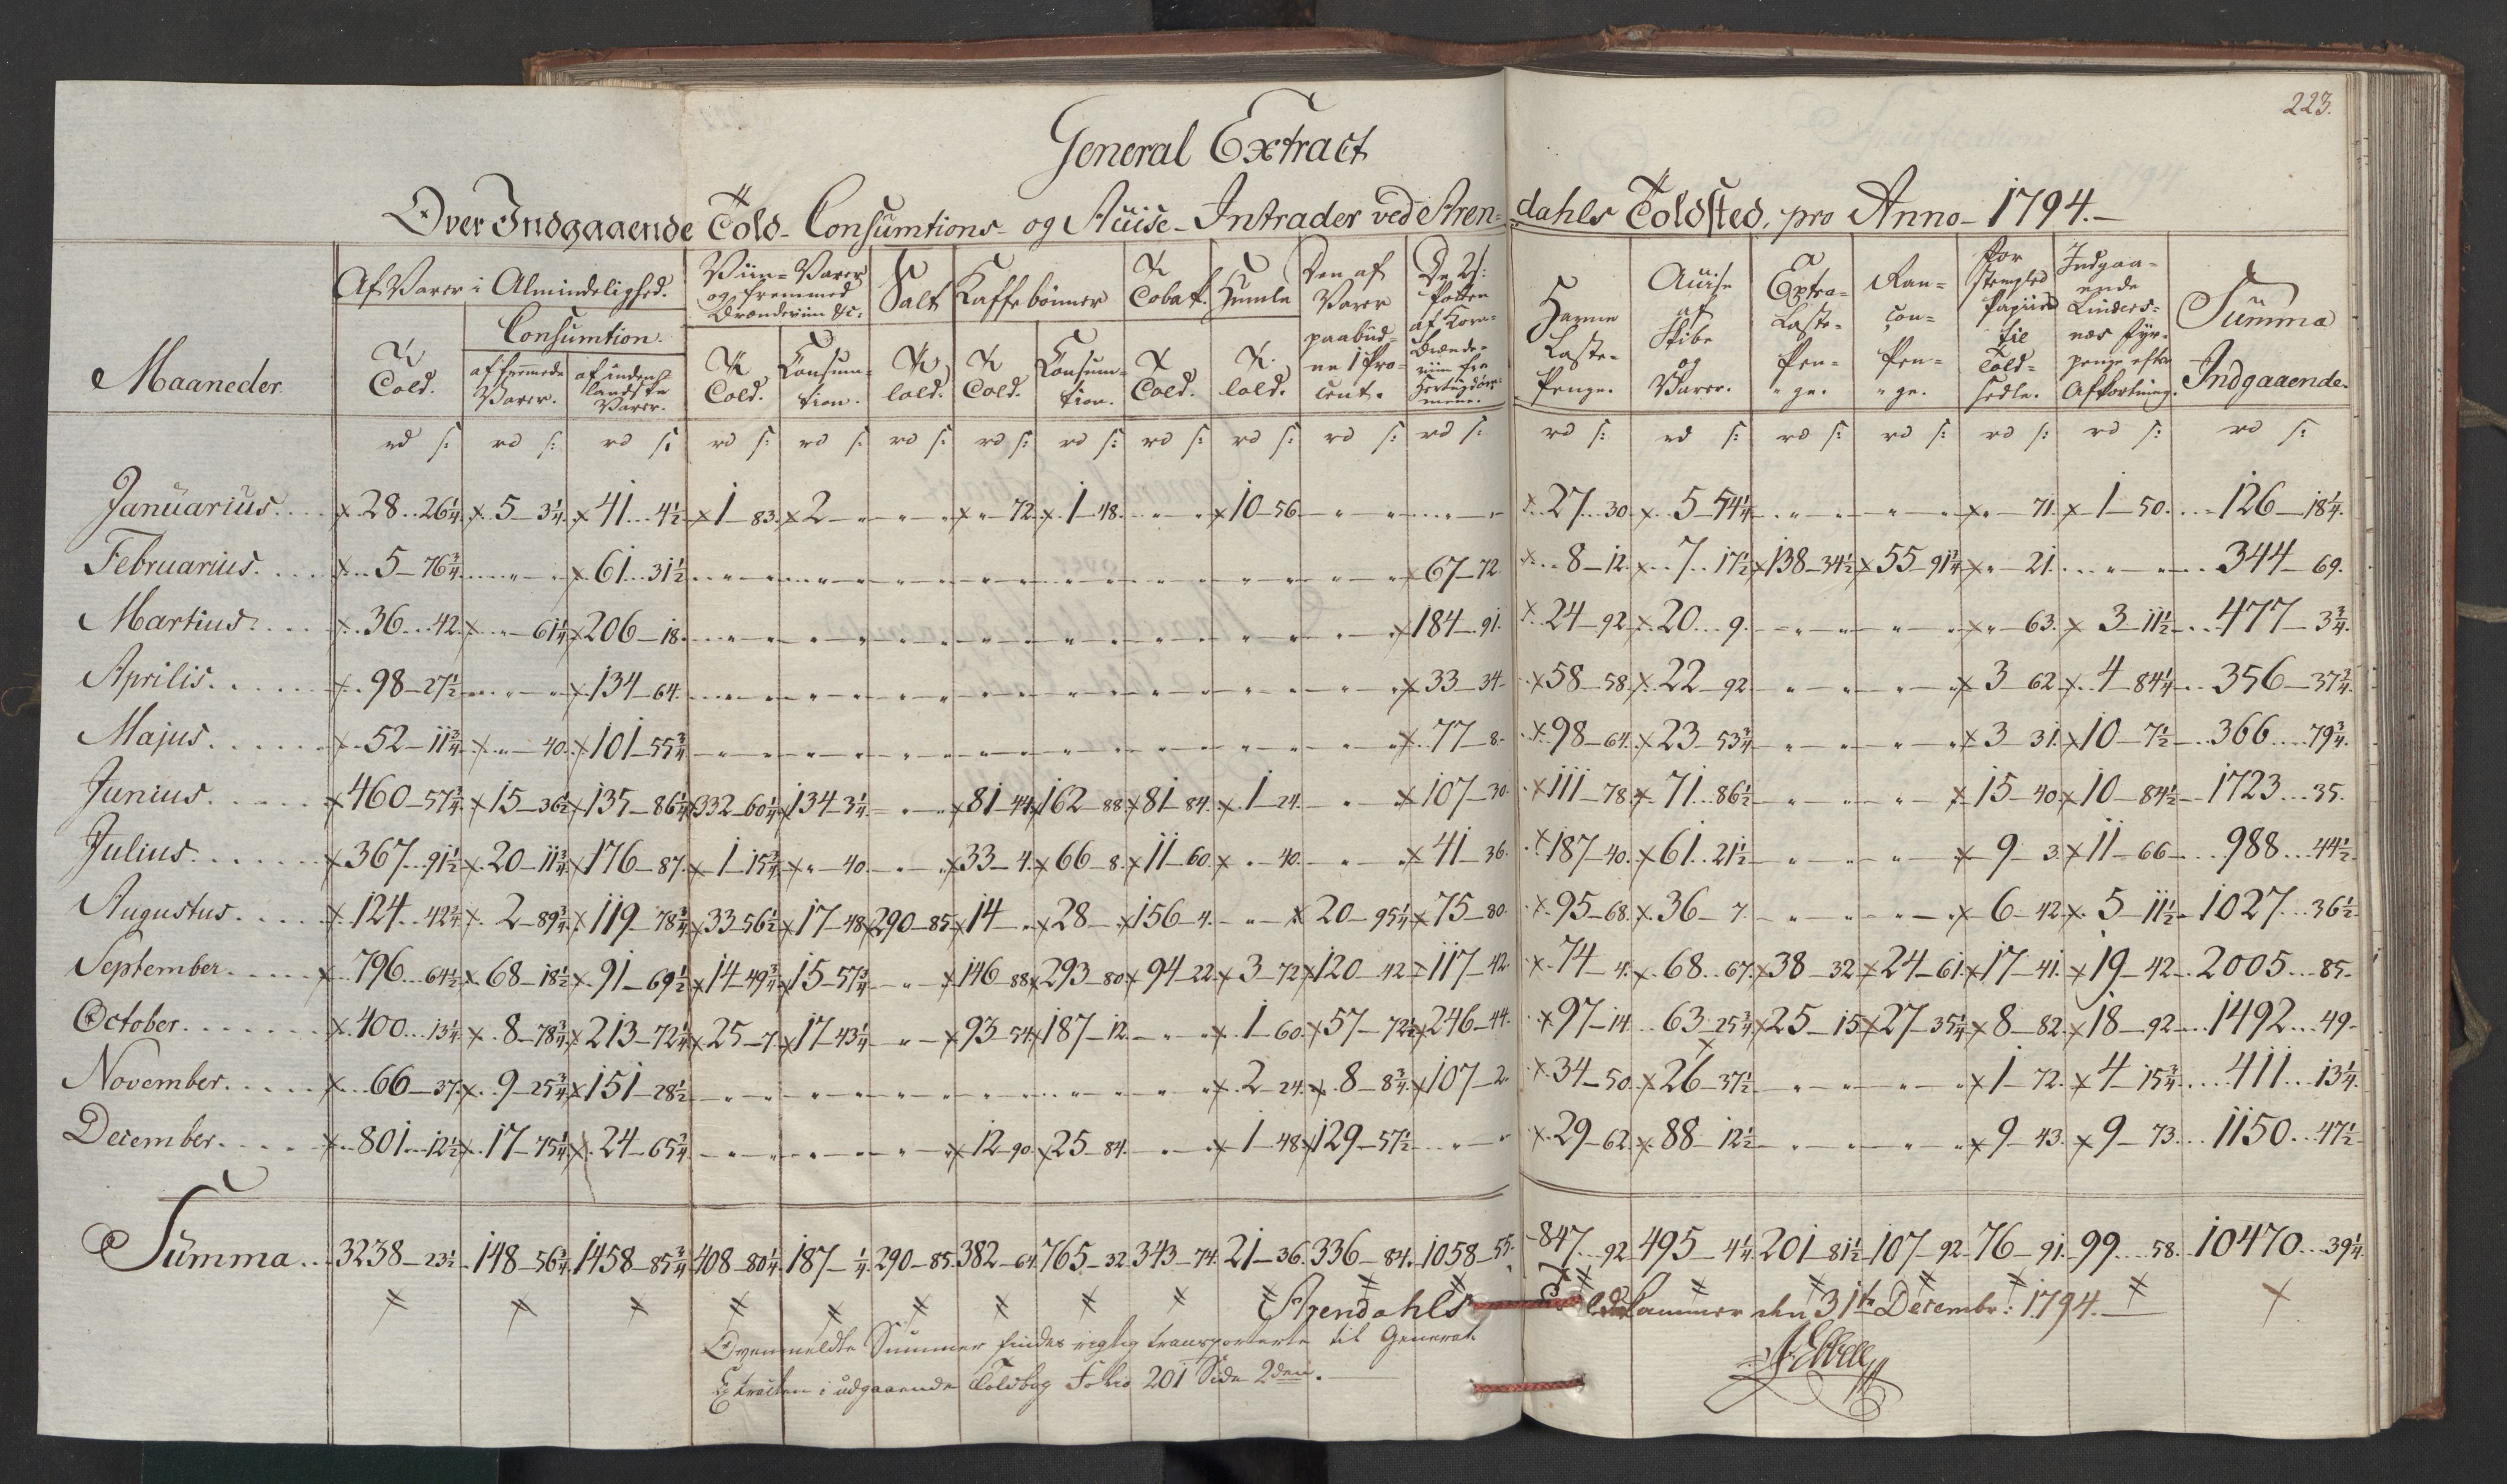 223.
General Extract
Over Indgaaende Told- Consumtions- og Acuise- Intrader ved Aren= dahls Toldsted, pro Anno- 1794.-
Maaneder. | Af Varer i Almindelighed. | Viin= Varer og fremmed Brændeviin &c: | Salt | Kaffebønner | Tobak. | Humle | Den af Varer paabud= ne 1 Pro= cent. | De 2 s: Potten af Korn= Brænde= viin fra Hertugdøm= mene. | Harve Laste= Penge. | Acuise af Skibe og Varer. | Extra= Laste= Pen= ge. | Ran= çon= Pen= ge. | For stempled Papiir til Told= sedle. | Indgaa= ende Linders= næs Fyr= penge efter Afkortning. | Summa Indgaaende.
Told. | Consumtion. af fremmede Varer. | af inden= landske Varer. | Told. | Consum= tion. | Told. | Told. | Consum= tion. | Told. | Told.
rd s: | rd s: | rd s: | rd s: | rd s: | rd s: | rd s: | rd s: | rd s: | rd s: | rd s: | rd s: | rd s: | rd s: | rd s: | rd s: | rd s: | rd s: | rd s:
Januarius. 28 26¼ | 5 3¼ | 41 4½ | 1 83 | 2 " | " | " 72 | 1 48 | " | 10 56 | " | " | 27 30 | 5 54¼ | " | " | " 71 | 1 50 | 126 18¼
Februarius. 5 76¾ | " | 61 31½ | " | " | " | " | " | " | " | " | 67 72 | 8 12 | 7 17½ | 138 34½ | 55 91¾ | " 21 | " | 344 69
Martius. 36 42 | " 61¼ | 206 18 | " | " | " | " | " | " | " | " | 184 91 | 24 92 | 20 9 | " | " | " 63 | 3 11½ | 477 3¾
Aprilis. 98 27½ | " | 134 64 | " | " | " | " | " | " | " | " | 33 34 | 58 58 | 22 92 | " | " | 3 62 | 4 84¼ | 356 37¾
Majus. 52 11¾ | " 40 | 101 55¾ | " | " | " | " | " | " | " | " | 77 8 | 98 64 | 23 53¾ | " | " | 3 31 | 10 7½ | 366 79¾
Junius. 460 57¾ | 15 36½ | 135 86¼ | 332 60¼ | 134 3¼ | " | 81 44 | 162 88 | 81 84 | 1 24 | " | 107 30 | 111 78 | 71 86½ | " | " | 15 40 | 10 84½ | 1723 35
Julius. 367 91½ | 20 11¾ | 176 87 | 1 15¾ | " 40 | " | 33 4 | 66 8 | 11 60 | " 40 | " | 41 36 | 187 40 | 61 21½ | " | " | 9 3 | 11 66 | 988 44½
Augustus. 124 42¾ | 2 89¾ | 119 78¾ | 33 56½ | 17 48 | 290 85 | 14 " | 28 " | 156 4 | " | 20 95¼ | 75 80 | 95 68 | 36 7 | " | " | 6 42 | 5 11½ | 1027 36½
September. 796 64½ | 68 18½ | 91 69½ | 14 49¾ | 15 57¾ | " | 146 88 | 293 80 | 94 22 | 3 72 | 120 42 | 117 42 | 74 4 | 68 67 | 38 32 | 24 61 | 17 41 | 19 42 | 2005 85
October. 400 13¼ | 8 78¾ | 213 72¼ | 25 7 | 17 43¼ | " | 93 54 | 187 12 | " | 1 60 | 57 72½ | 246 44 | 97 14 | 63 25¾ | 25 15 | 27 35¼ | 8 82 | 18 92 | 1492 49
November. 66 37 | 9 25¾ | 151 28½ | " | " | " | " | " | " | 2 24 | 8 8¾ | 107 2 | 34 50 | 26 37½ | " | " | 1 72 | 4 15¾ | 411 13¼
December. 801 12½ | 17 75¼ | 24 65¾ | " | " | " | 12 90 | 25 84 | " | 1 48 | 129 57½ | " | 29 62 | 88 12½ | " | " | 9 43 | 9 73 | 1150 47½
Summa 3238 23½ | 148 56¾ | 1458 85¾ | 408 80¼ | 187 ¼ | 290 85 | 382 64 | 765 32 | 343 74 | 21 36 | 336 84 | 1058 55 | 847 92 | 495 4¼ | 201 81½ | 107 92 | 76 91 | 99 58 | 10470 39¼
Arendahls Told Kammer den 31te Decembr: 1794.
Ovenmeldte Summer findes rigtig transporterte til General
Extracten i udgaaende Toldbog Folio 201 Side 2den.